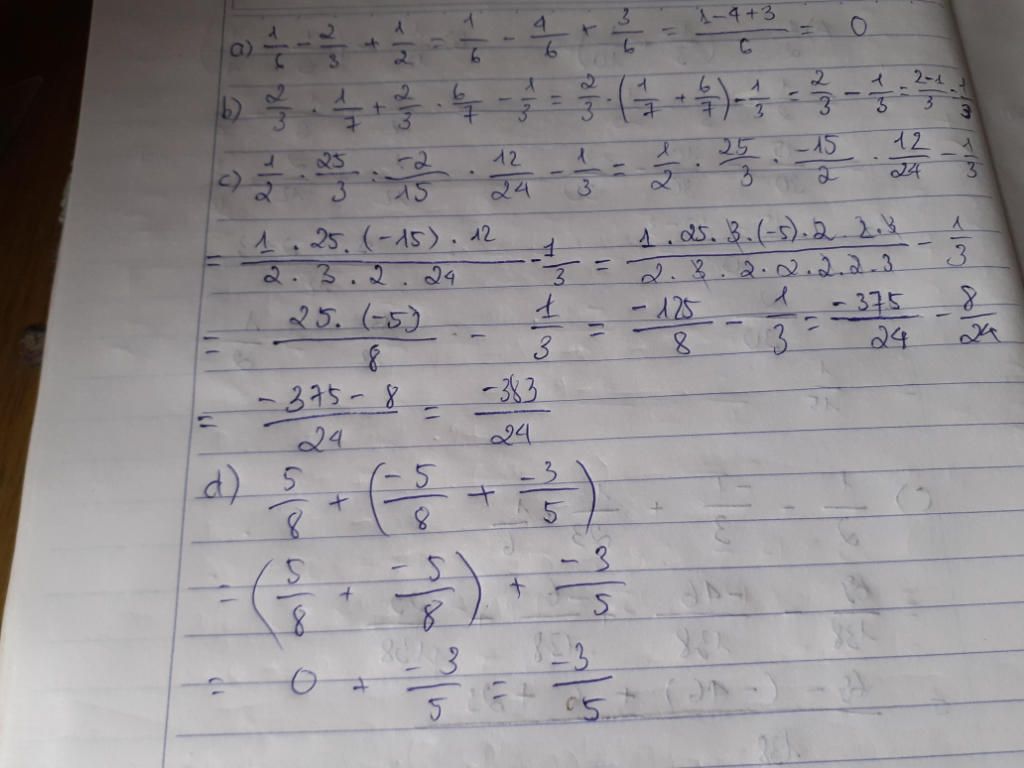 a) 1/6 - 2/3 + 1/2 = 1/6 - 4/6 + 3/6 = (1-4+3)/6 = 0
b) 2/3 . 1/7 + 2/3 . 6/7 - 1/3 = 2/3 . (1/7 + 6/7) - 1/3 = 2/3 - 1/3 = (2-1)/3 = 1/3
c) 1/2 . 25/3 : -2/15 . 12/24 - 1/3 = 1/2 . 25/3 . -15/2 . 12/24 - 1/3
= (1 . 25 . (-15) . 12)/(2 . 3 . 2 . 24) - 1/3 = (1 . 25 . 3 . (-5) . 2 . 2 . 3)/(2 . 3 . 2 . 2 . 2 . 2 . 3) - 1/3
= (25 . (-5))/8 - 1/3 = -125/8 - 1/3 = -375/24 - 8/24
= (-375 - 8)/24 = -383/24
d) 5/8 + (-5/8 + -3/5)
= (5/8 + -5/8) + -3/5
= 0 + -3/5 = -3/5